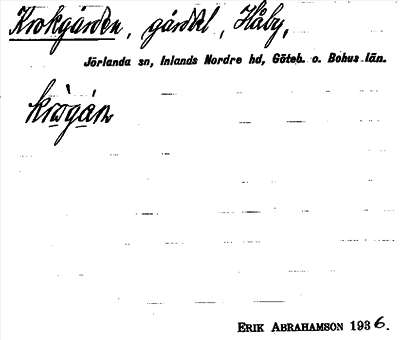 Krokgården, gårddel, Håby,
Jörlanda sn, Inlands Nordre hd, Göteb. o. Bohus län.
ERIK ABRAHAMSON 1936.